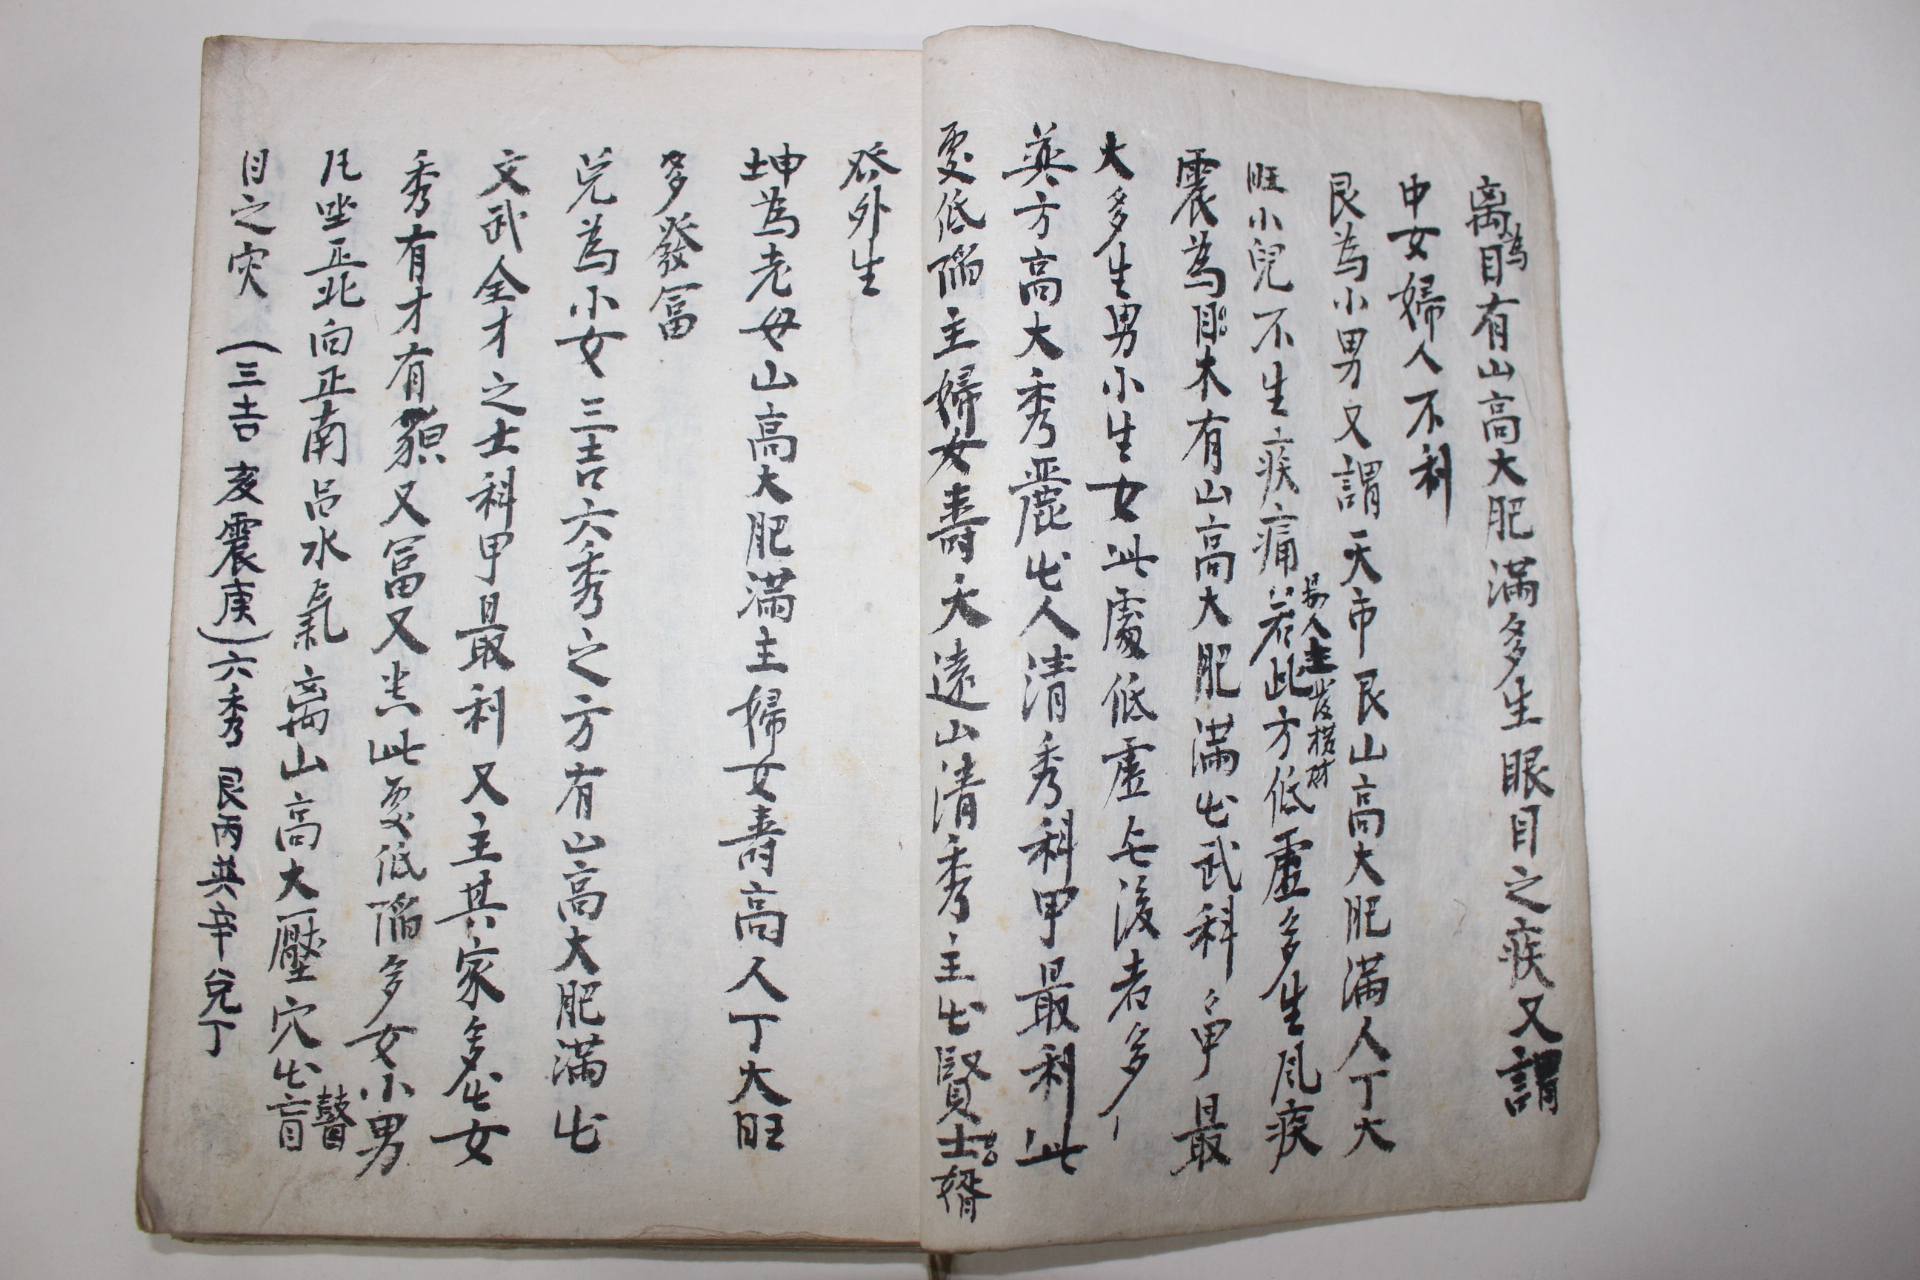 離為目有山高大肥滿多生眼目之疾又謂
中女婦人不利
艮為小男又謂天市艮山高大肥滿人丁大
旺小兒不生疾痛若此方低虛多生風疾
震為木有山高大肥滿出武科甲最
大多生男小生女此處低虛後者多
英方高大秀麗出人清秀科甲最利此
處低陷主婦女壽夭遠山清秀主出賢士婿
外生
坤為老母山高大肥滿主婦女壽高人丁大旺
多發富
兌為小女三吉六秀之方有山高大肥滿出
文武全才之士科甲最利又主其家多出女
秀有才有貌又富又貴此處低陷多女小男
凡坐正北向正南呂水氣离山高大壓穴出瞽盲
目之灾（三吉亥震庚）六秀艮丙英辛兌丁